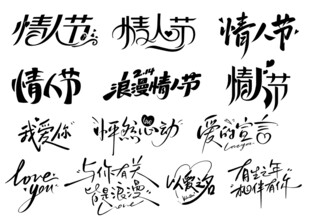 情人节
情人节
情人节
情人节
2.14
浪漫情人节
情人节
我爱你
怦然心动
love
爱的宣言
love you
与你有关
皆是浪漫
Love
以爱之名
有生之年
相伴有你